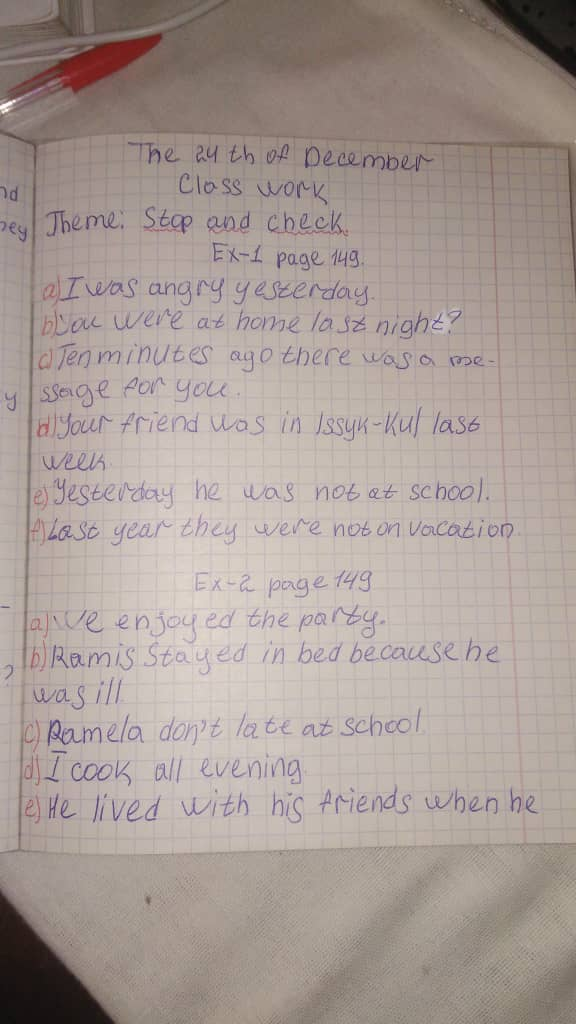 The 24 th of December
Class work
nd
Theme: Stop and check.
ey
Ex-1 page 149.
a) I was angry yesterday.
b) You were at home last night?
c) Ten minutes ago there was a me-
ssage for you.
y
d) Your friend was in Issyk-Kul last
week
e) Yesterday he was not at school.
f) Last year they were not on vacation.
Ex-2 page 149
a) We enjoyed the party.
b) Ramis Stayed in bed because he
?
was ill.
c) Ramela don't late at school.
d) I cook all evening.
e) He lived with his friends when he